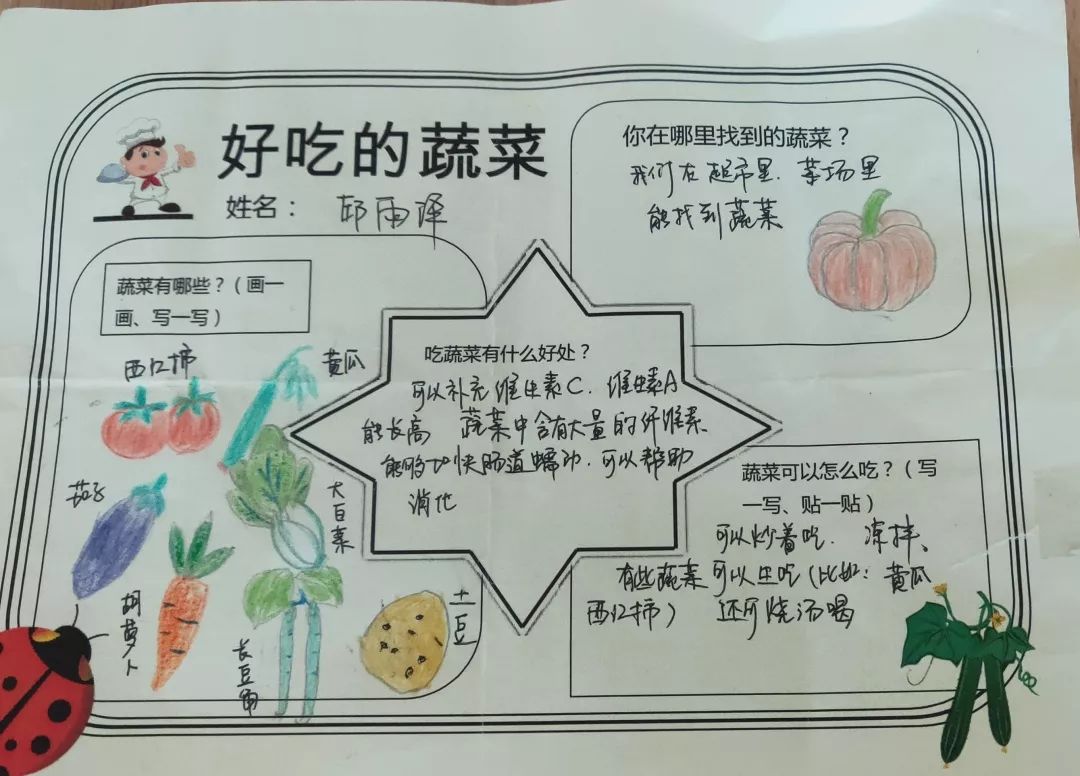 好吃的蔬菜
姓名： 邱雨泽
你在哪里找到的蔬菜？
我们在超市里、菜场里
能找到蔬菜
蔬菜有哪些？（画一
画、写一写）
西红柿
黄瓜
茄子
大白菜
胡萝卜
长豆角
土豆
吃蔬菜有什么好处？
可以补充维生素C、维生素A
能长高 蔬菜中含有大量的纤维素、
能够加快肠道蠕动、可以帮助
消化
蔬菜可以怎么吃？（写
一写、贴一贴）
可以炒着吃、凉拌、
有些蔬菜可以生吃（比如：黄瓜
西红柿） 还可烧汤喝